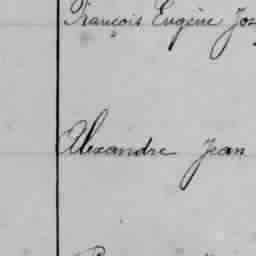 François Eugène Jo
Alexandre Jean